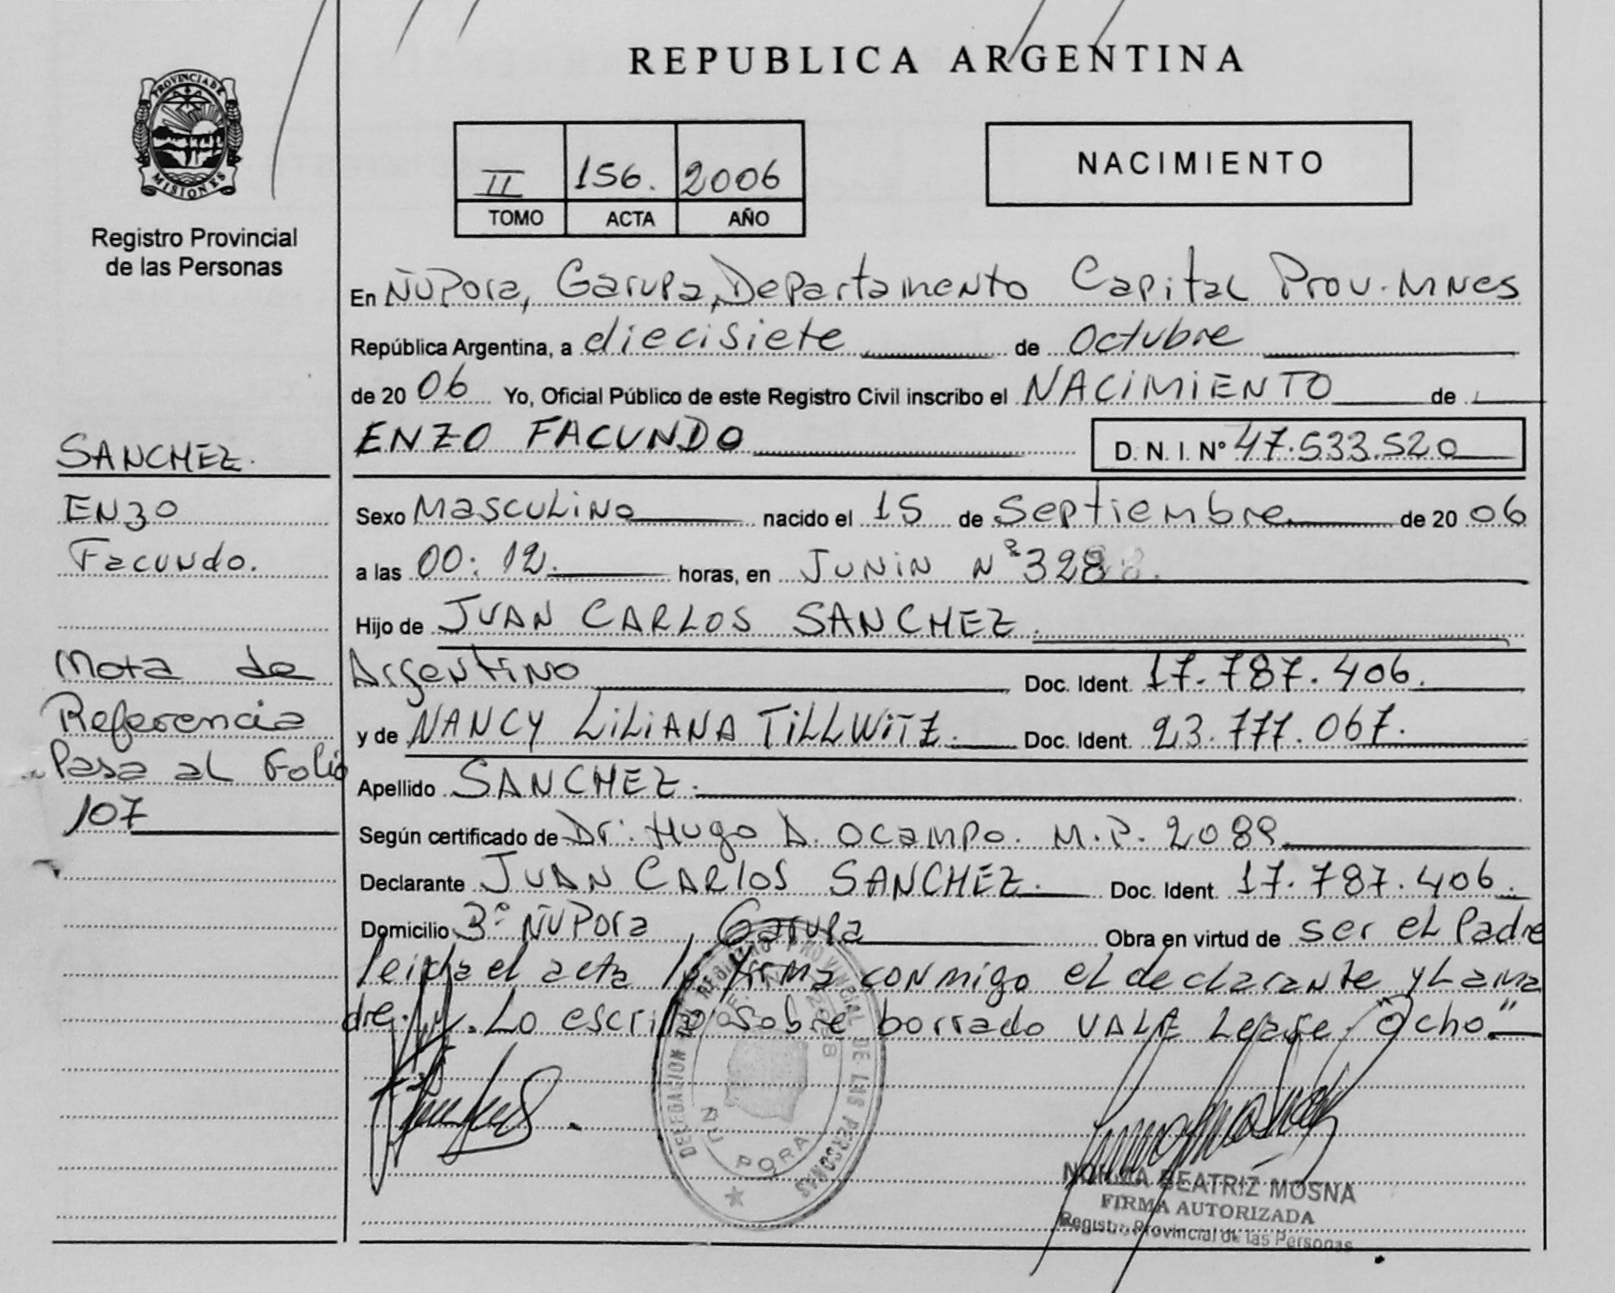 REPUBLICA ARGENTINA
PROVINCIA DE MISIONES
Registro Provincial
de las Personas
II 156. 2006
TOMO ACTA AÑO
NACIMIENTO
En ÑUPora, Garupa, Departamento Capital Prov. MNES
República Argentina, a diecisiete de Octubre
de 2006 Yo, Oficial Público de este Registro Civil inscribo el NACIMIENTO de
ENZO FACUNDO D. N. I. Nº 47.533.520
SANCHEZ.
Enzo
Facundo.
Sexo Masculino nacido el 15 de Septiembre de 2006
a las 00:12. horas, en JUNIN Nº 328
Hijo de JUAN CARLOS SANCHEZ
Argentino Doc. Ident. 17.787.406.
y de NANCY LILIANA TILLWITZ. Doc. Ident. 23.777.067.
Nota de
Referencia
Pasa al Folio
107
Apellido SANCHEZ.
Según certificado de Dr: Hugo D. Ocampo. M.P. 2089
Declarante JUAN CARLOS SANCHEZ. Doc. Ident. 17.787.406.
Domicilio 3º ÑUPora, Garupa Obra en virtud de ser el Padre
leida el acta la firma conmigo el declarante y La ma
dre. Lo escrito sobre borrado VALE Lease "Ocho"
DELEGACION DEL REGISTRO PROVINCIAL DE LAS PERSONAS
ÑU PORA
NORMA BEATRIZ MOSNA
FIRMA AUTORIZADA
Registro Provincial de las Personas